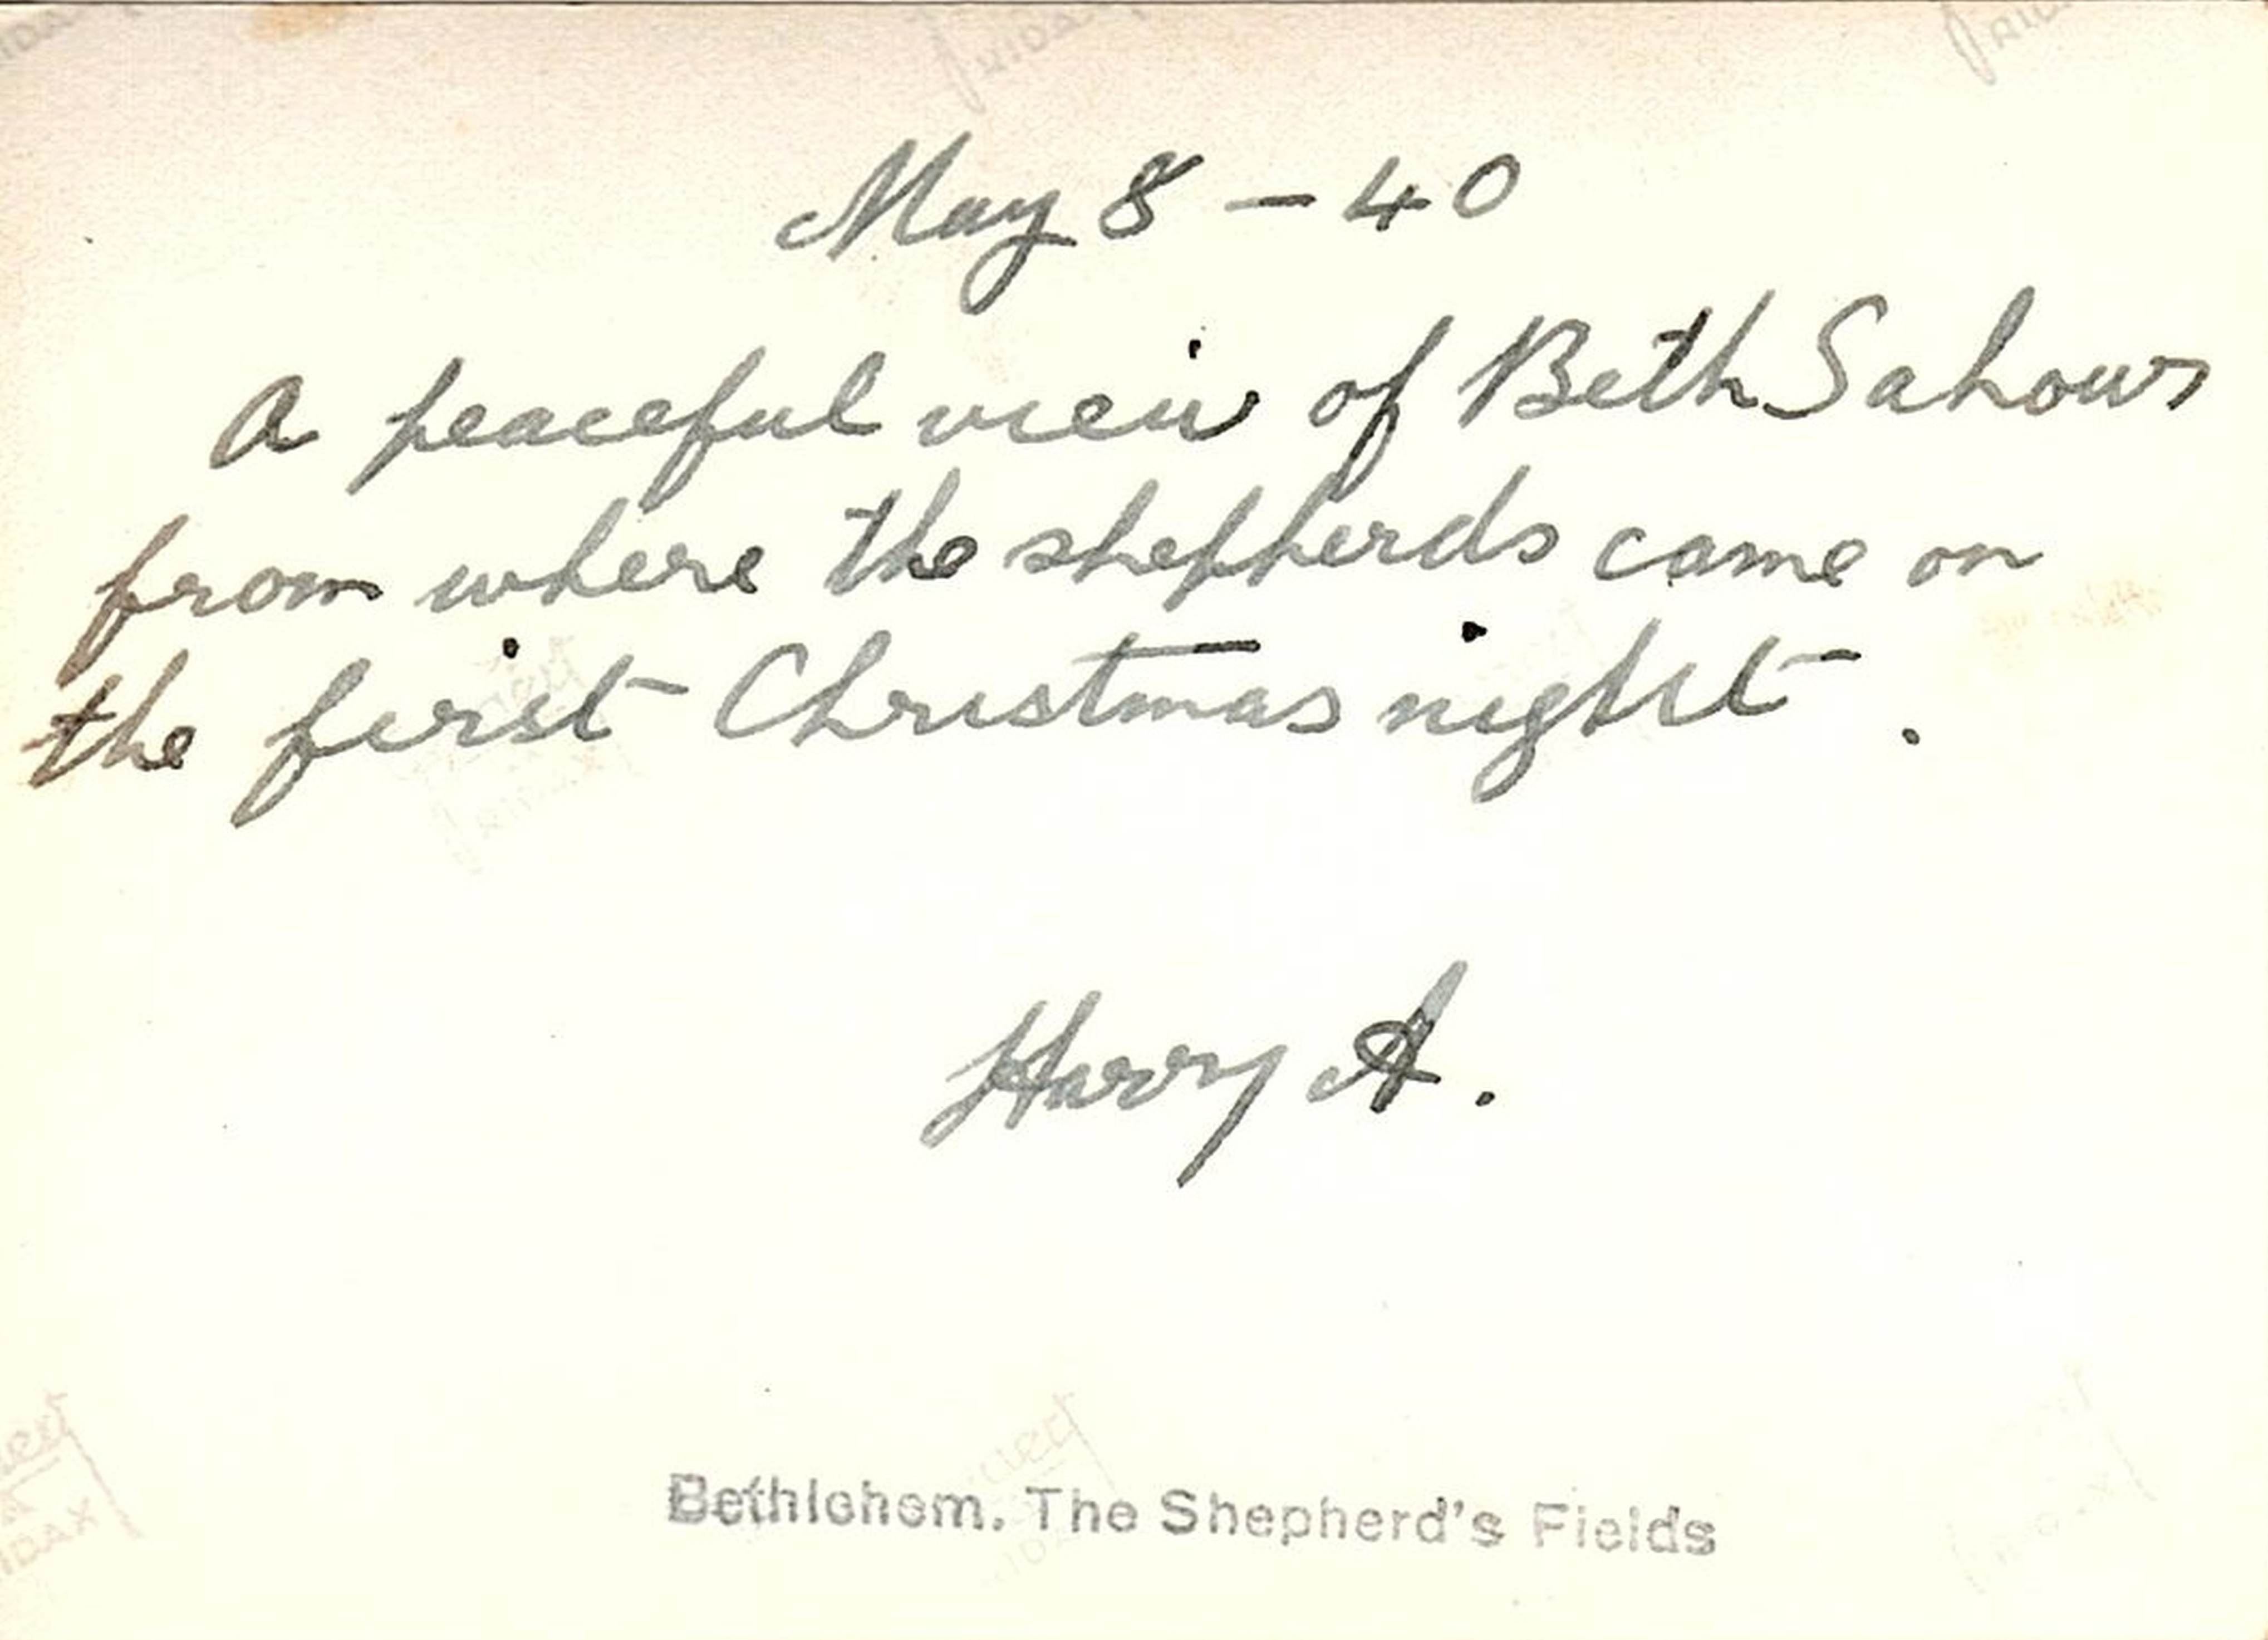 May 8 - 40
A peaceful view of Beth Sahour
from where the shepherds came on
the first Christmas night.
Harry A.
Bethlehem. The Shepherd's Fields